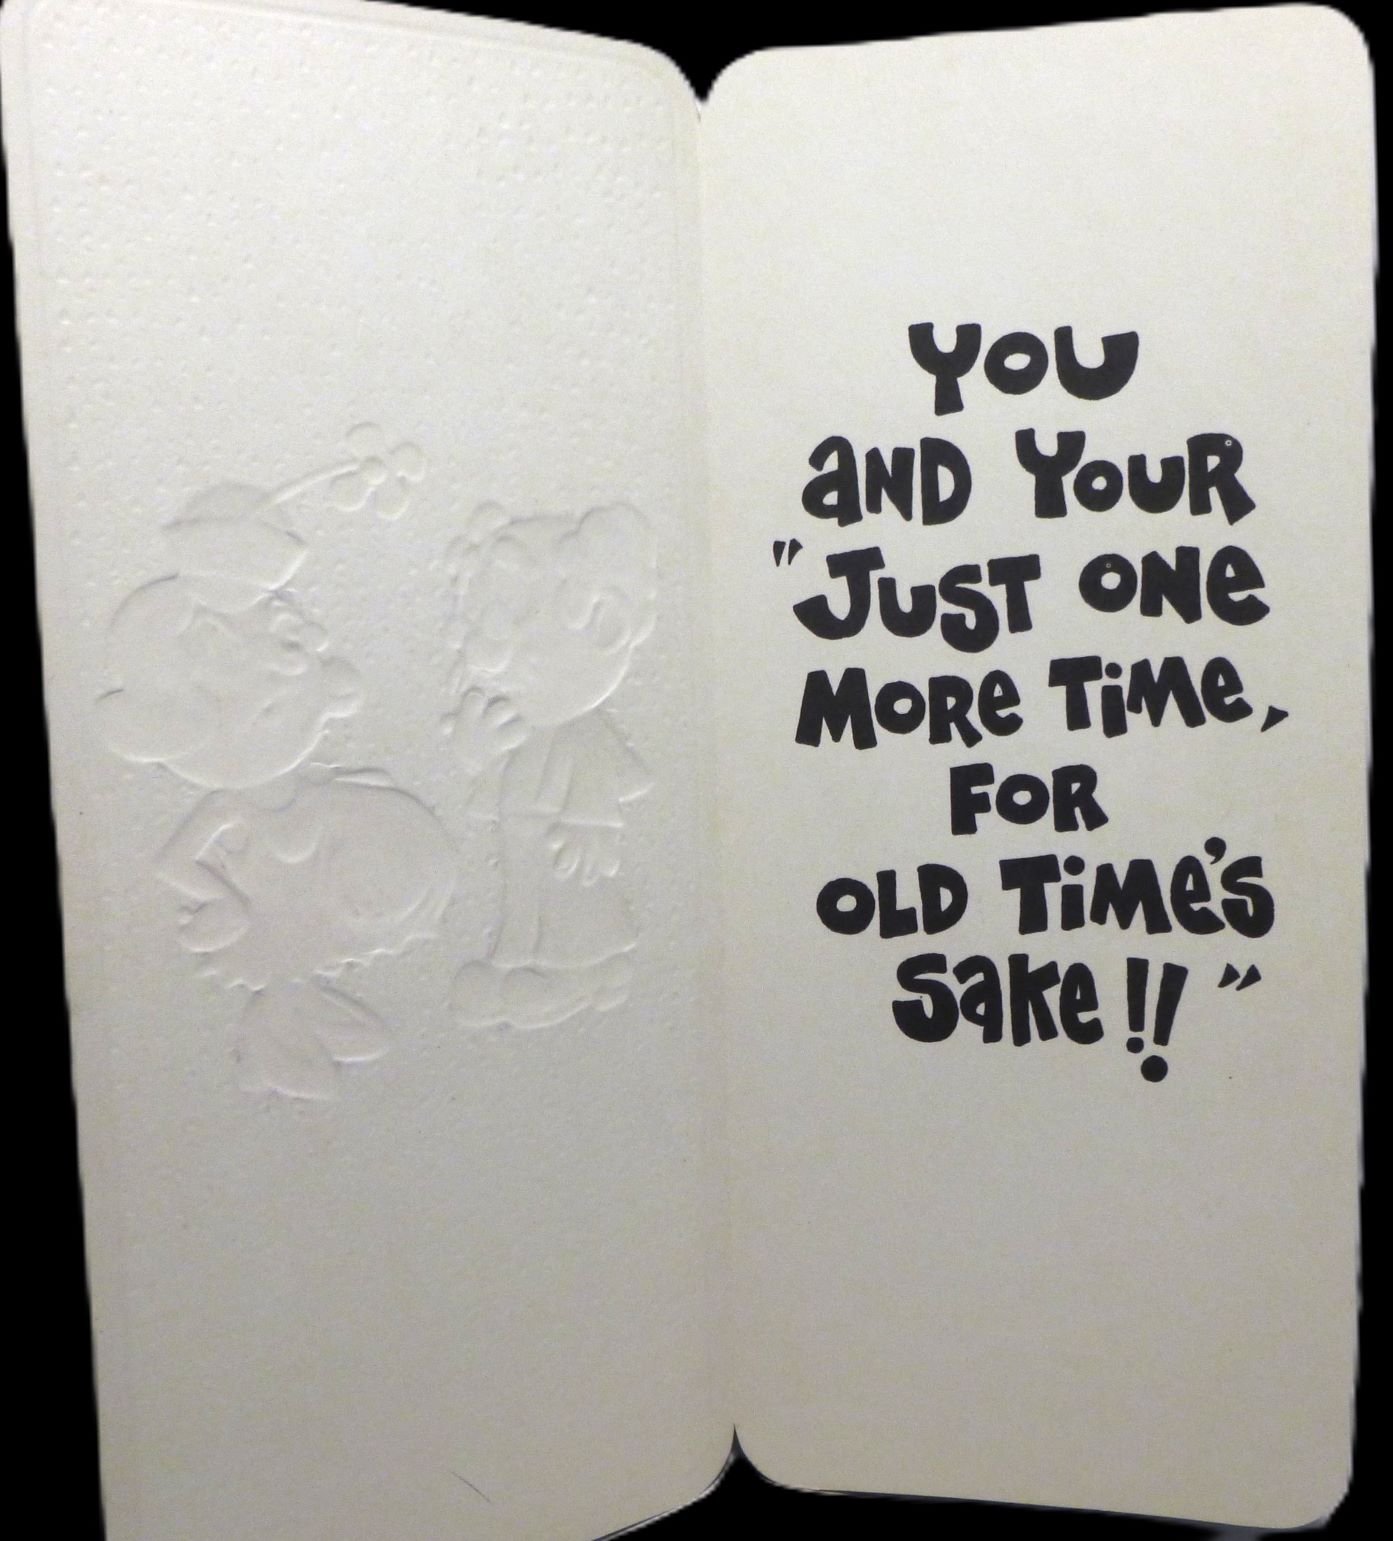 YOU
aND YOUR
"JUST ONe
MORe TiMe,
FOR
OLD TiMe'S
Sake!!"